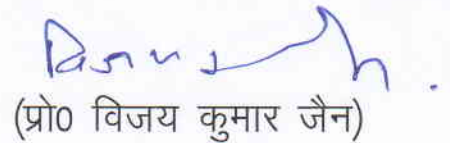 (प्रो0 विजय कुमार जैन)